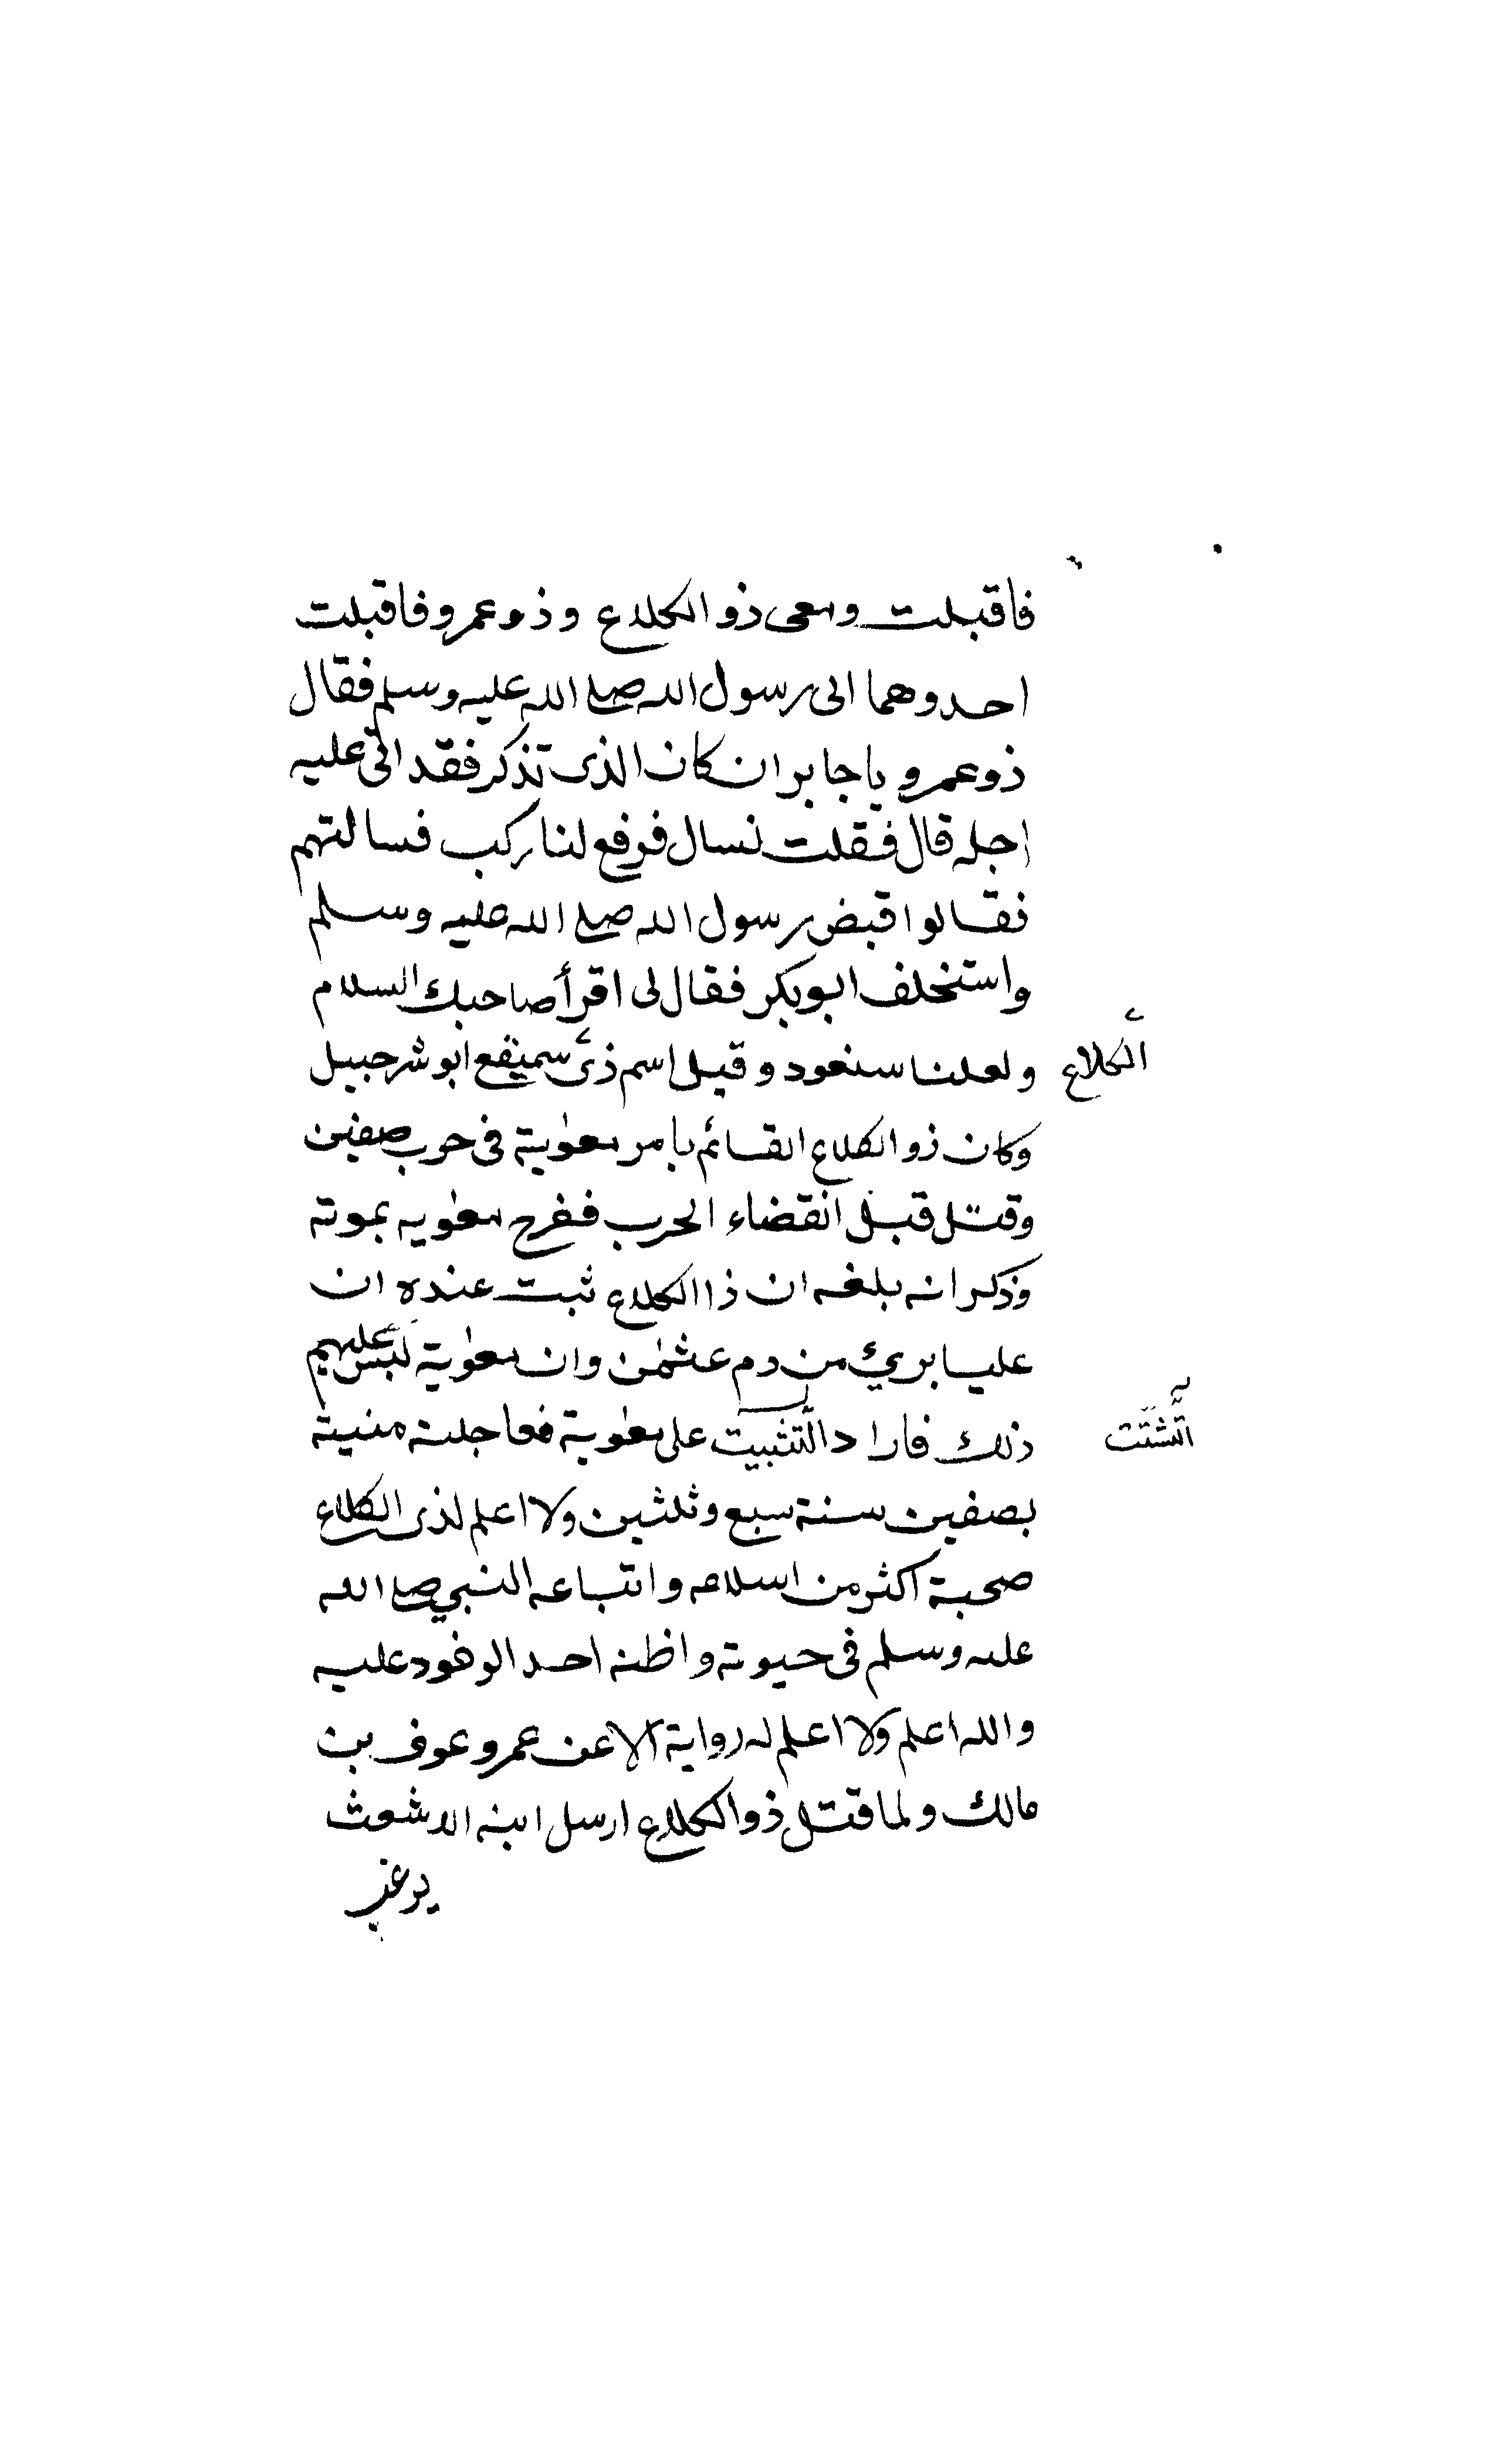 فاقبلت ومعى ذو الكلاع وذو عمرو فاقبلت
احدوهما الى رسول الله صلى الله عليه وسلم فقال
ذو عمرو يا جابر ان كان الذى تذكر فقد اتى عليه
اجله قال فقلت نسال فرفع لنا ركب فسالتهم
فقالوا قبض رسول الله صلى الله عليه وسلم
واستخلف ابو بكر فقال لى اقرأ صاحبك السلام
ولعلنا سنعود وقيل اسم ذى سميفع ابو شرحبيل
الكلاع
وكان ذو الكلاع القائم بامر معوية فى حرب صفين
وقتل قبل انقضاء الحرب ففرح معويه بموته
وذكر انه بلغه ان ذا الكلاع ثبت عنده ان
عليا بريئ من دم عثمن وان معوية لبس عليهم
ذلك فاراد التثبيت على معوية فعاجلته منيته
التشتت
بصفين سنة سبع وثلثين ولا اعلم لذى الكلاع
صحبة اكثر من اسلامه واتباعه النبي صلى الله
عليه وسلم فى حيوته واظنه احد الوفود عليه
والله اعلم ولا اعلم له رواية الا عن عمرو عوف بن
مالك ولما قتل ذو الكلاع ارسل ابنه الاشعث
يرغب